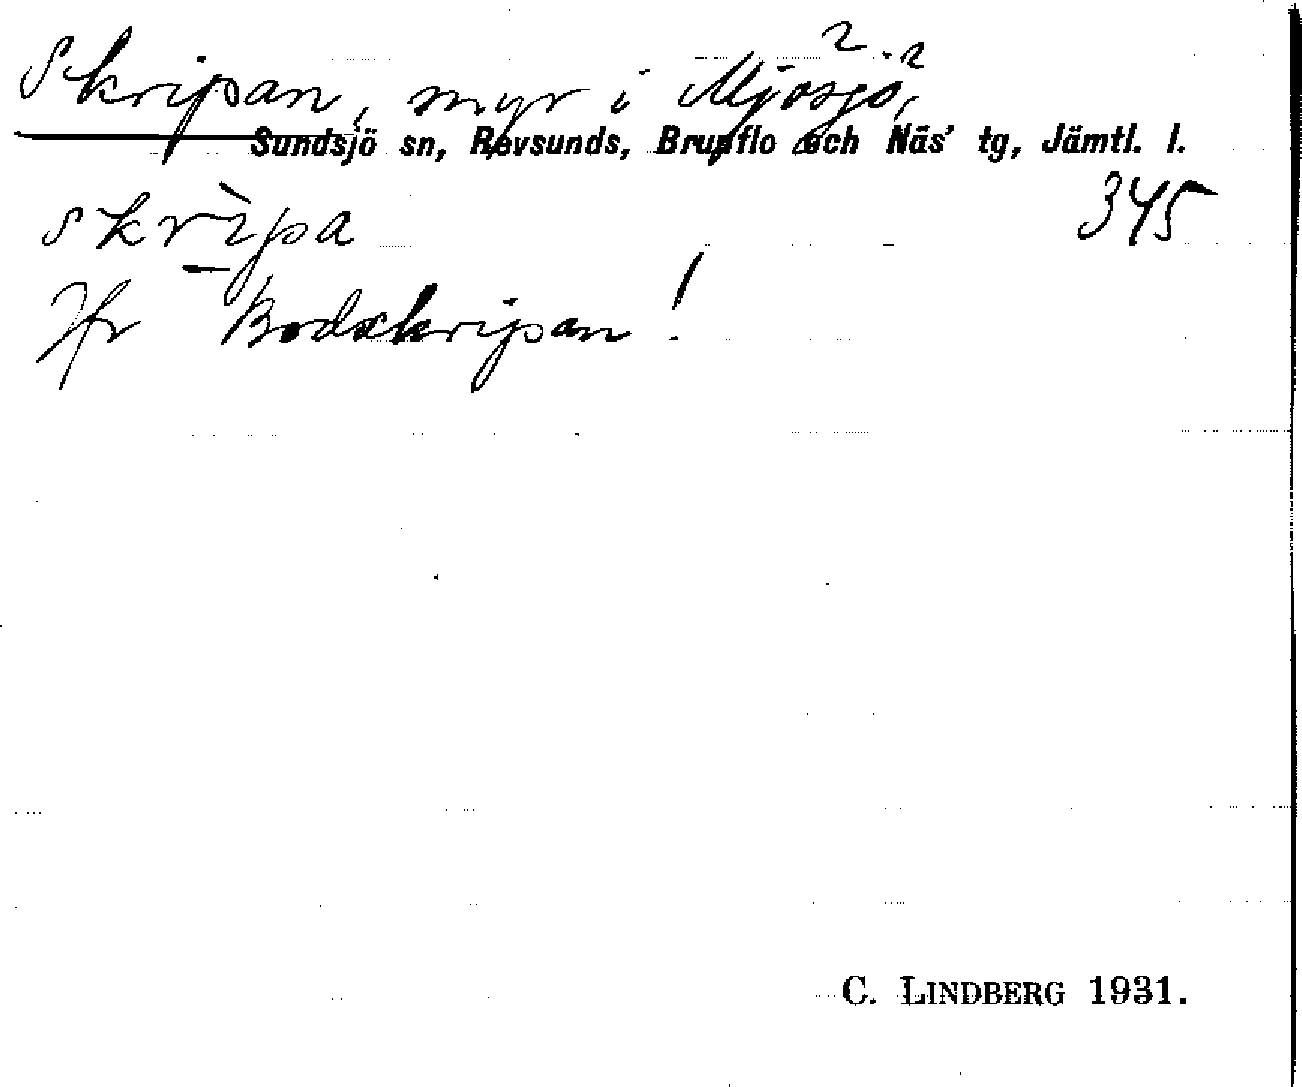 Skripan, myr i Mjösjö,
Sundsjö sn, Revsunds, Brunflo och Näs' tg, Jämtl. l.
skrìpa
345
Jfr Bodskripan!
C. LINDBERG 1931.